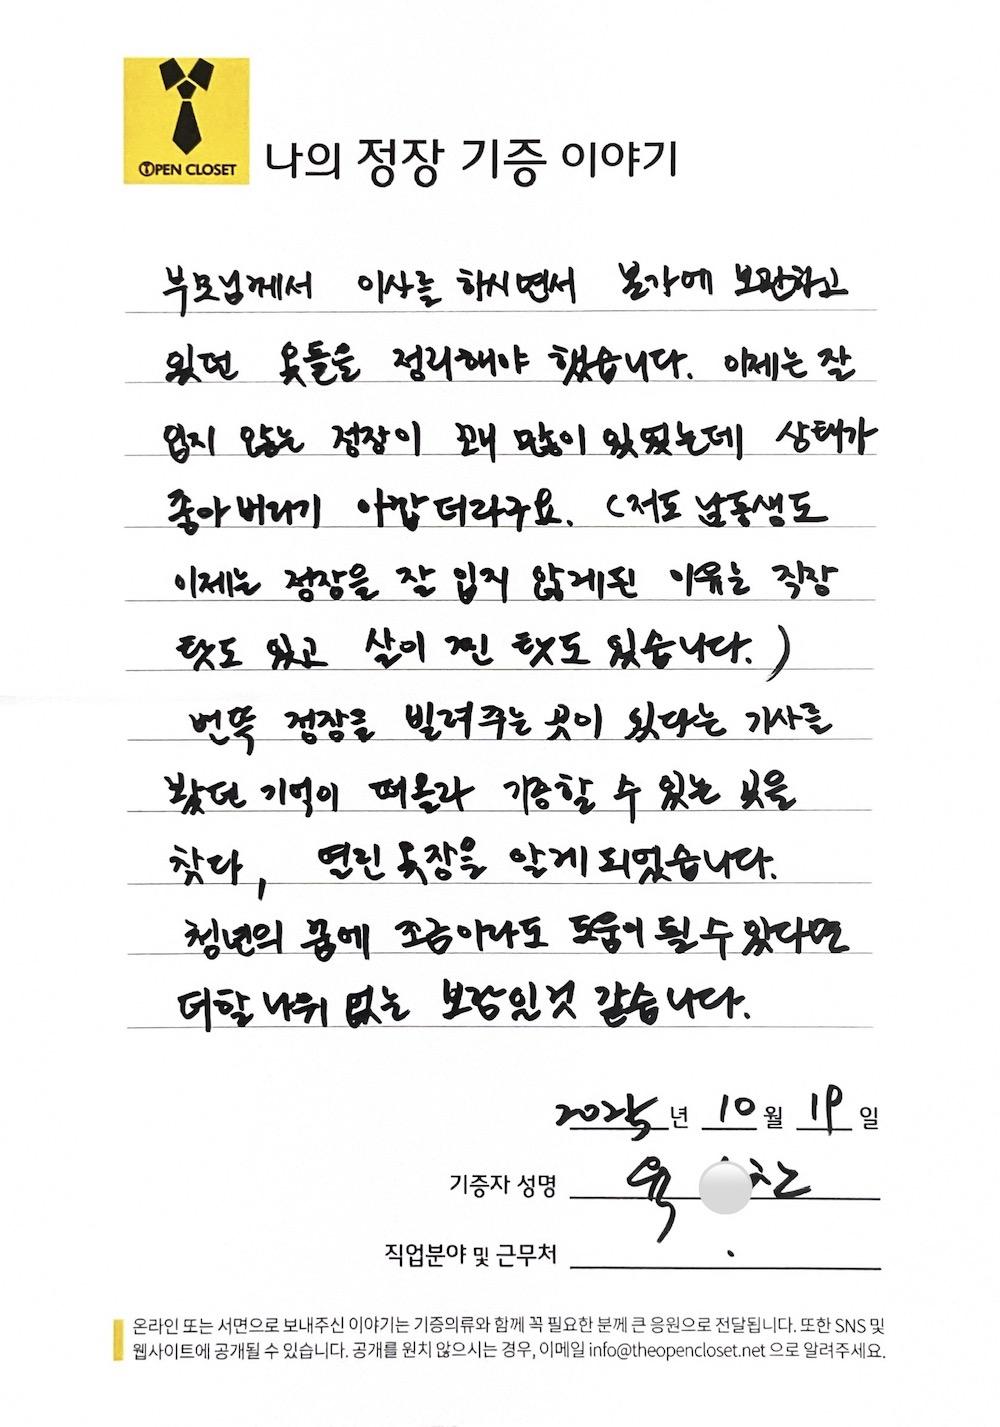 OPEN CLOSET
나의 정장 기증 이야기
부모님께서 이사를 하시면서 본가에 보관하고
있던 옷들을 정리해야 했습니다. 이제는 잘
입지 않는 정장이 꽤 많이 있었는데 상태가
좋아 버리기 아깝더라구요. (저도 남동생도
이제는 정장을 잘 입지 않게된 이유는 직장
탓도 있고 살이 찐 탓도 있습니다.)
번뜩 정장을 빌려주는 곳이 있다는 기사를
봤던 기억이 떠올라 기증할 수 있는 곳을
찾다, 열린옷장을 알게 되었습니다.
청년의 꿈에 조금이나도 도움이 될 수 있다면
더할 나위 없는 보람인것 같습니다.
2025년 10월 19일
기증자 성명 육
직업분야 및 근무처
온라인 또는 서면으로 보내주신 이야기는 기증의류와 함께 꼭 필요한 분께 큰 응원으로 전달됩니다. 또한 SNS 및
웹사이트에 공개될 수 있습니다. 공개를 원치 않으시는 경우, 이메일 info@theopencloset.net 으로 알려주세요.